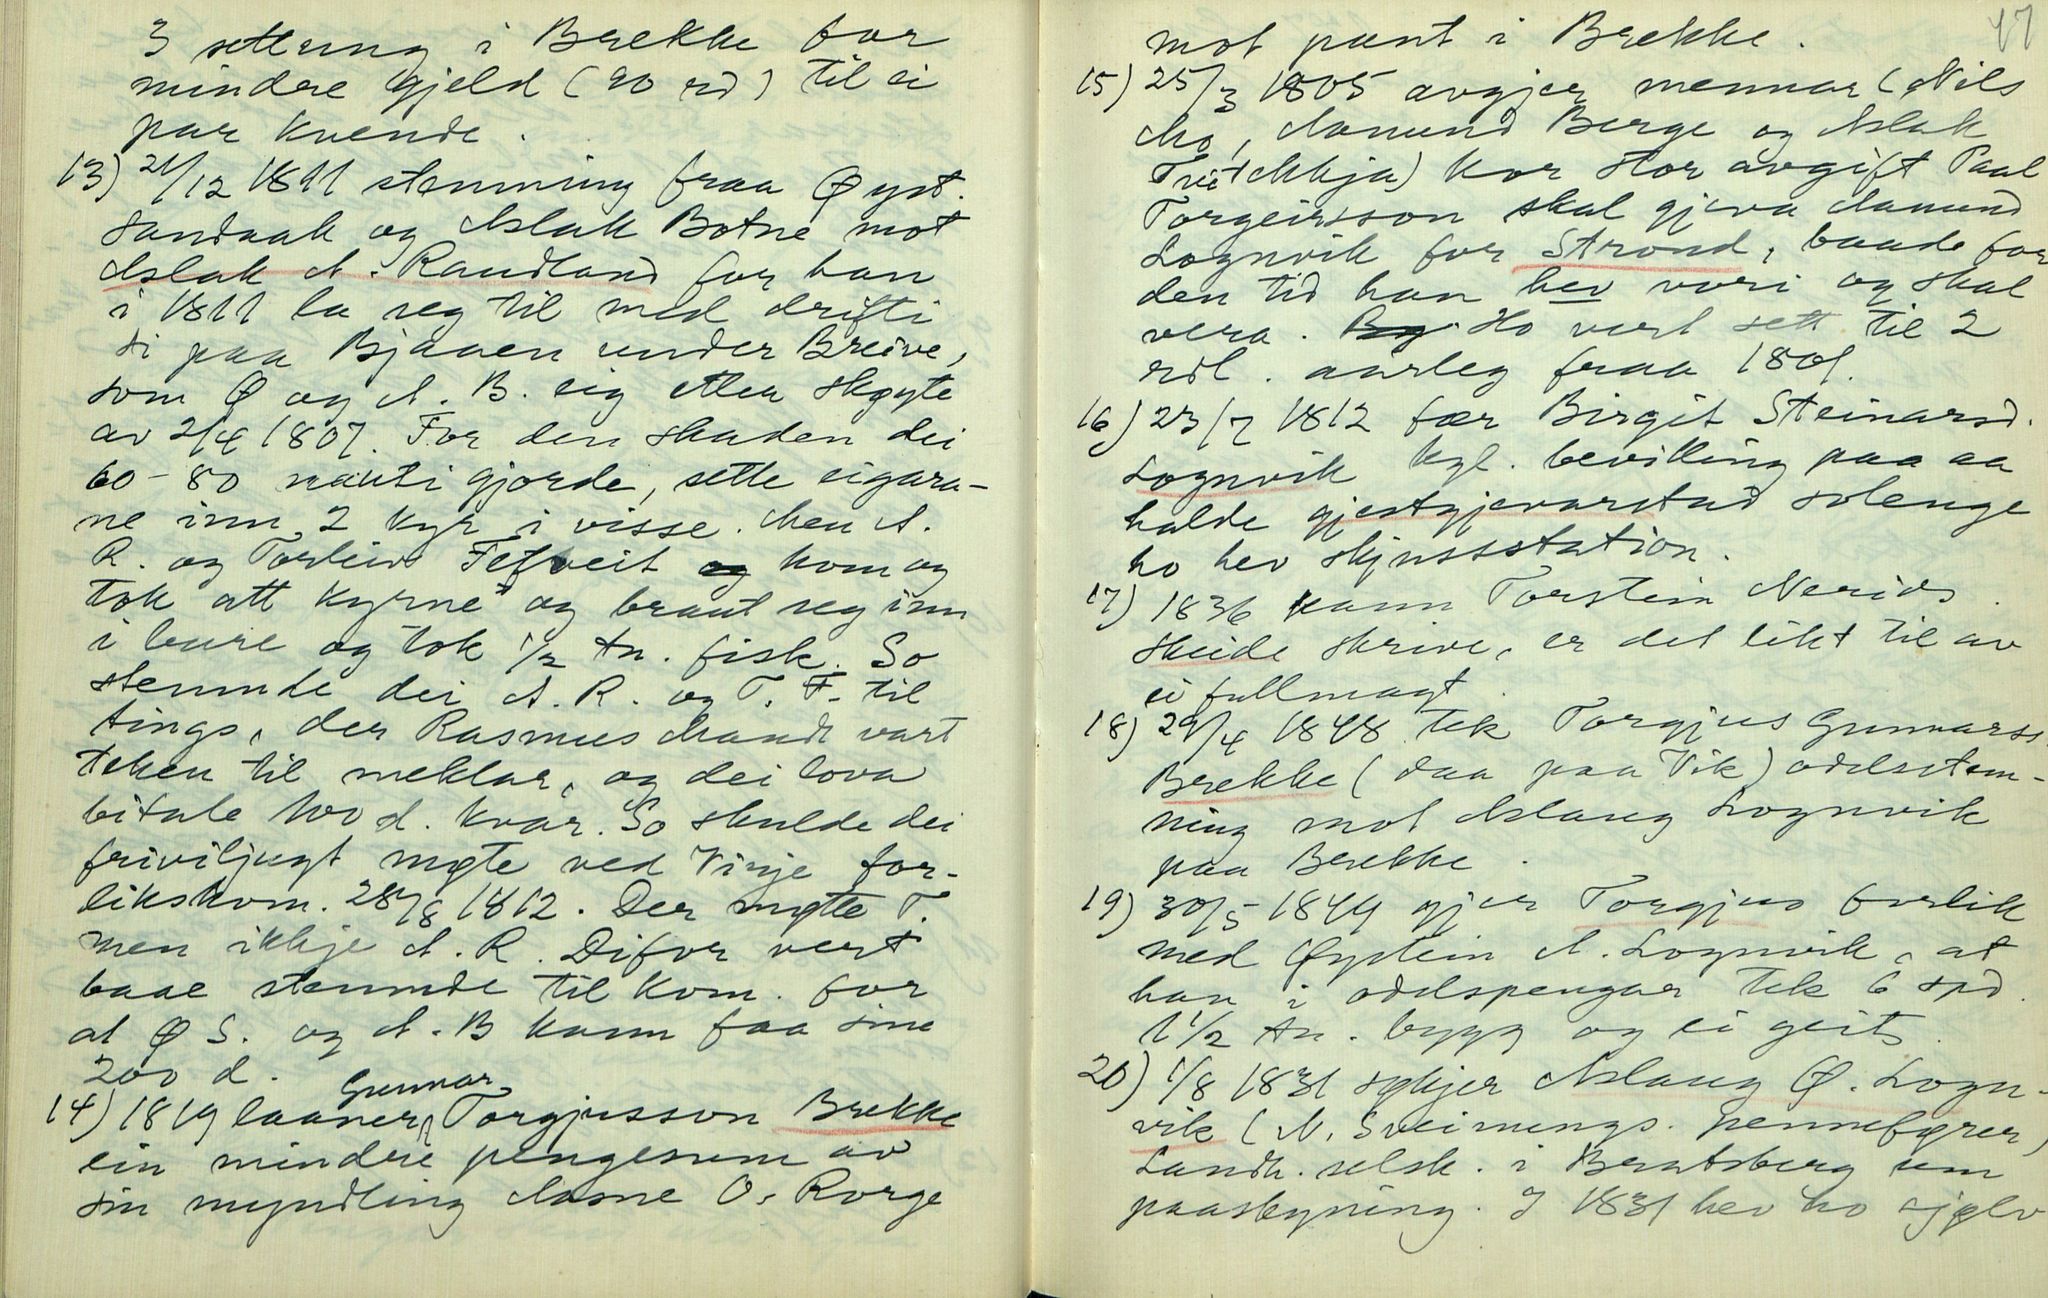 3 settung i Brekke for
mindre gjeld (90 rd) til ei
par kvende.
13) 21/12 1811 stemning fraa Øyst.
Sandaak og Aslak Botne mot
Aslak A. Raudland for han
i 1811 la seg til med drifti
si paa Bjaaen under Breive,
som Ø og A. B. eig etter skøyte
av 2/4 1807. For den skaden dei
60-80 nauti gjorde, sette eigara-
ne inn 2 kyr i visse. Men A.
R. og Torleiv Tefveit og kom og
tok att kyrne og braut seg inn
i bure og tok 1/2 tn. fisk. So
stemnde dei A. R. og T. F. til
tings, der Rasmus Mandt vart
teken til meklar, og dei lova
bitale 100 d. kvar. So skulde dei
friviljugt møte ved Vinje for-
likskom. 28/8 1812. Der møtte T.
men ikkje A. R. Difor vert
baae stemnde til kom. for
at Ø S. og A. B kann faa sine
200 d.
14) 1819 laaner Gunnar Torgjusson Brekke
ein mindre pengesum av
sin myndling Aasne O. Rorge
47
mot pant i Brekke.
15) 25/3 1805 avgjer mennar (Nils
Mo, Aamund Berge og Aslak
Tveitekkja) kor stor avgift Paal
Torgeirsson skal gjeva Aamund
Lognvik for Strond, baade for
den tid han hev vori og skal
vera. Ho vert sett til 2
rdl. aarleg fraa 1801.
16) 23/7 1812 fær Birgit Steinarsd.
Lognvik kgl. bevilling paa aa
halde gjestgjevarstad solenge
ho hev skjussstation.
17) 1836 kann Torstein Nerids.
Skeide skrive, er det likt til av
ei fullmagt.
18) 29/4 1848 tek Torgjus Gunnarss.
Brekke (daa paa Vik) odelsstem-
ning mot Aslaug Lognvik
paa Brekke.
19) 30/5 1849 gjer Torgjus forlik
med Øystein A. Lognvik, at
han i odelspengar tek 6 spd.
1 1/2 tn. bygg og ei geit.
20) 1/8 1831 søkjer Aslaug Ø. Logn-
vik (N. Sveinungs. pennefører)
Landh. selsk. i Bratsberg um
paaskyning. I 1831 hev ho sjølv